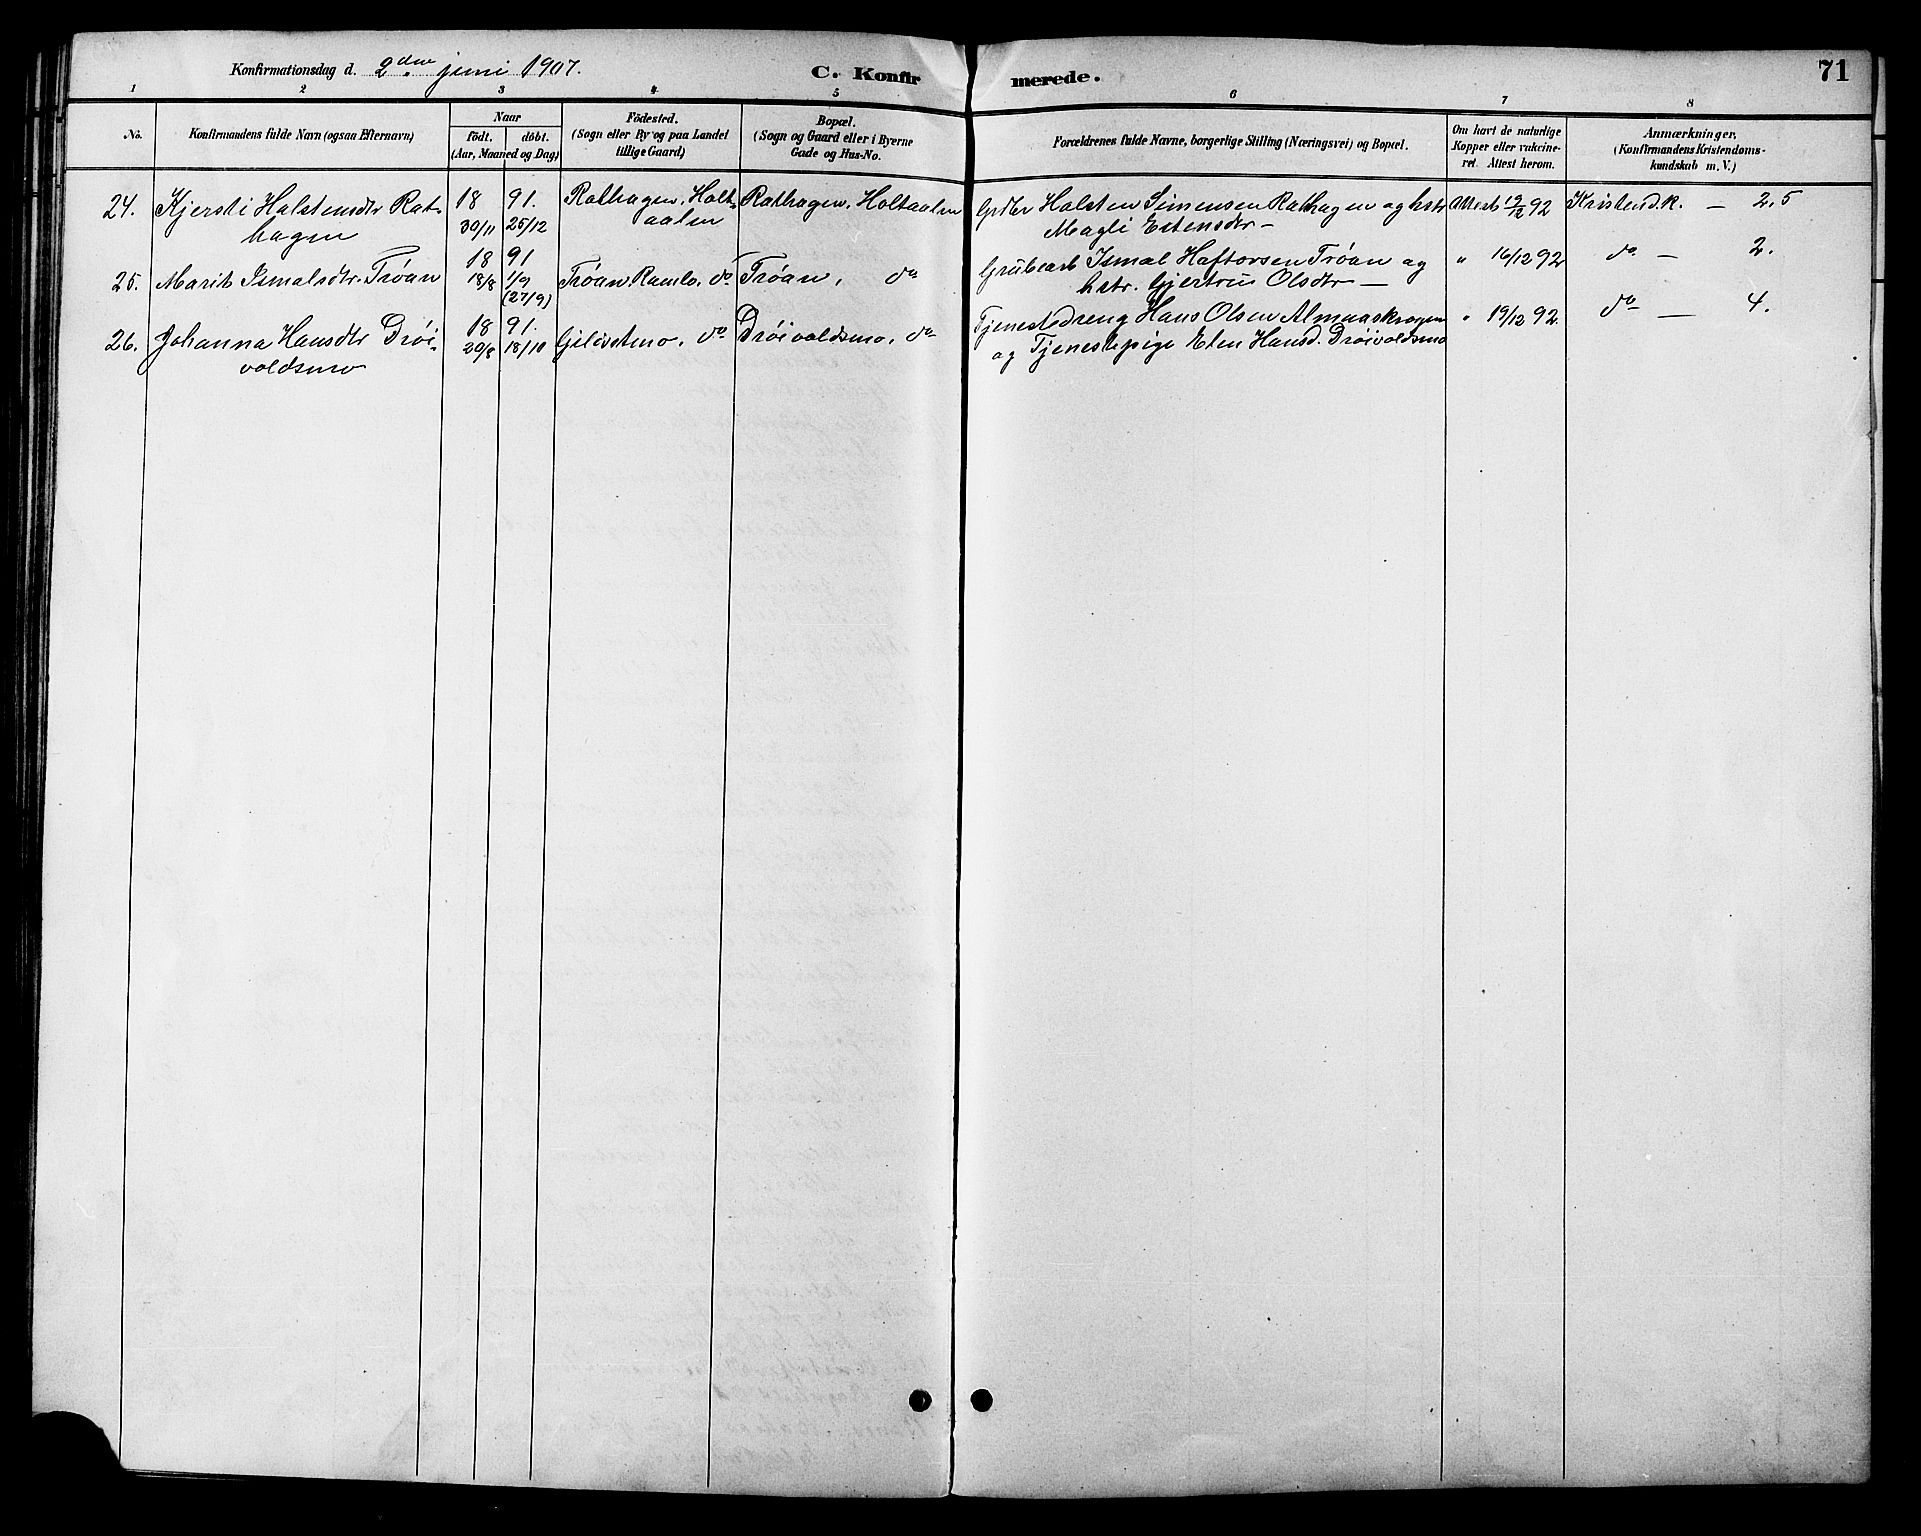 Konfirmationsdag d. 2den juni 1907. C. Konfirmerede. 71
1 2 3 4 5 6 7 8
No. Konfirmandens fulde Navn (ogsaa Efternavn) Naar födt. döbt. (Aar, Maaned og Dag) Födested. (Sogn eller By og paa Landet tillige Gaard) Bopæl. (Sogn og Gaard eller i Byerne Gade og Hus-No. Forældrenes fulde Navne, borgerlige Stilling (Næringsvei) og Bopæl. Om havt de naturlige Kopper eller vakcineret. Attest herom. Anmærkninger, (Konfirmandens Kristendomskundskab m. V.)
24. Kjersti Halstensdtr Rat- 18 91. Rathagen, Holt- Rathagen, Holtaalen Grdbr Halsten Simensen Rathagen og hstr Attest 19/12 92 Kristend.k. — 2,5
hagen 30/11 25/12 aalen Magli Estensdtr —
25. Marit Ismalsdtr. Trøan 18 91 18/8 1/9 (27/9) Trøan Ramlo, do Trøan, do Grubearb Ismal Haftorsen Trøan og " 16/12 92 do — 2.
hstr. Gjertru Olsdtr —
26. Johanna Hansdtr Drøi- 18 91. Gilivstmo, do Drøivoldsmo, do Tjenestedreng Hans Olsen Almaaskrogen " 19/12 92. do — 4.
voldsmo 20/8 18/10 og Tjenestepige Elen Hansd. Drøivoldsmo